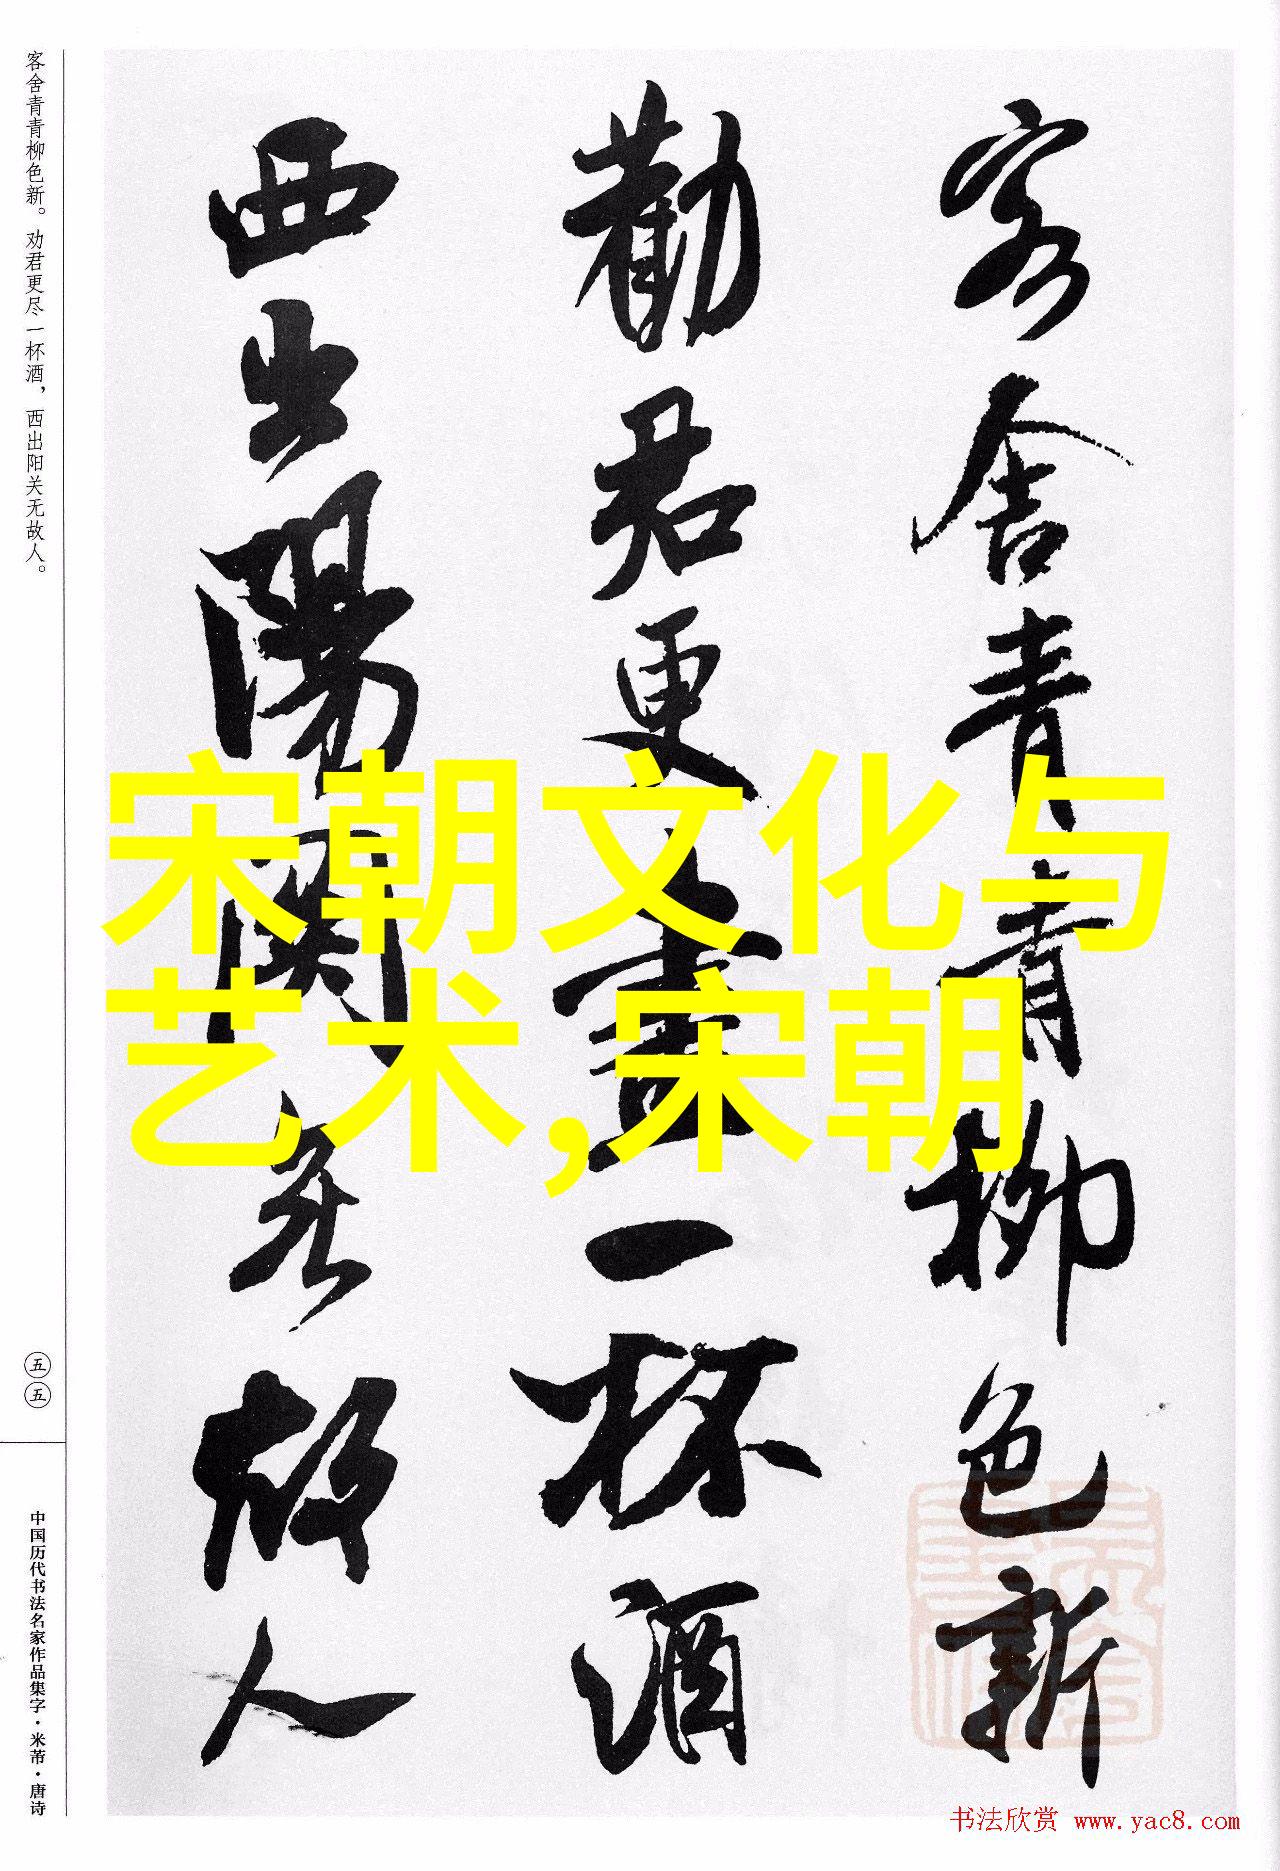 客舍青青柳色新
勸君更盡一杯酒
西出陽關無故人
客舍青青柳色新。劝君更尽一杯酒，西出阳关无故人。
五五
中国历代书法名家作品集字·米芾·唐诗
宋朝文化与
艺术,宋朝
书法欣赏 www.yac8.com